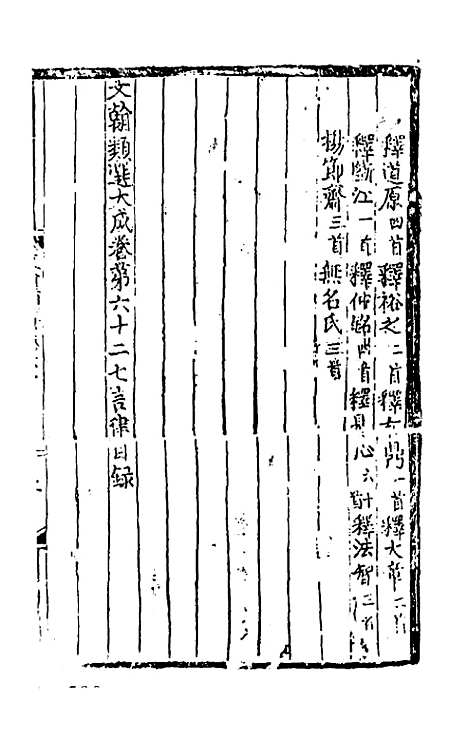 釋道原四首釋裕之二首釋大鼎一首釋大章二首
釋浙江一首釋仲銘四首釋見心六十首釋法智三首
楊節齋三首無名氏三首
文翰類選大成卷第六十二七言律目録